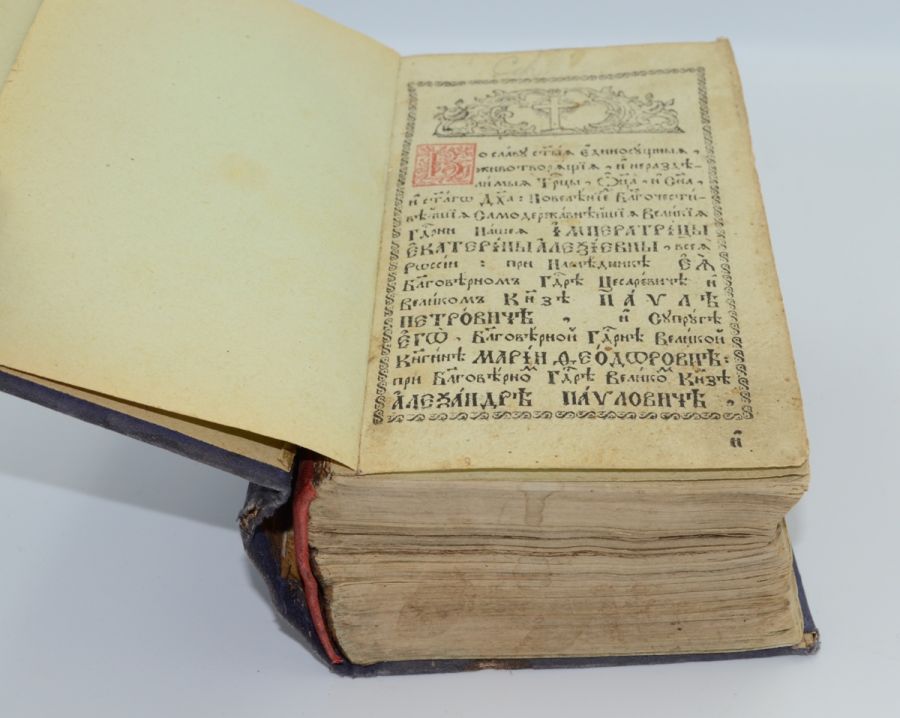 Во славу ст҃ы́ѧ є҆диносꙋ́щныѧ ,
животворѧ́щїѧ , и҆ нераздѣ-
ли́мыѧ трⷪ҇цы , ѻ҆ц҃а̀ , и҆ сн҃а ,
и҆ ст҃а́гѡ дх҃а : Повелѣ́нїемъ Бл҃гочести-
вѣ́йшїѧ Самодержа́внѣйшїѧ Вели́кїѧ
Гдⷭ҇рни На́шеѧ І҆МПЕРАТРИ́ЦЫ
Є҆КАТЕРІ́НЫ А҆ЛЕѮІ́ЕВНЫ , всеѧ̀
Рѡссі́и : при Наслѣ́дникѣ Є҆Ѧ̀
Бл҃говѣ́рномъ Гдⷭ҇рѣ Цесаре́вичѣ и҆
Вели́комъ Кн҃зѣ ПА́ѴЛѢ
ПЕТРО́ВИЧѢ , и҆ Сꙋпрꙋ́гѣ
Є҆ГѠ̀ , Бл҃говѣ́рной Гдⷭ҇рнѣ Вели́кой
Кнѧги́нѣ МАРІ́И Ѳ҆ЕО́ДѠРОВНѢ :
при Бл҃говѣ́рноⷨ Гдⷭ҇рѣ Вели́коⷨ Кн҃зѣ
А҆ЛЕѮА́НДРѢ ПА́ѴЛОВИЧѢ ,
и҆